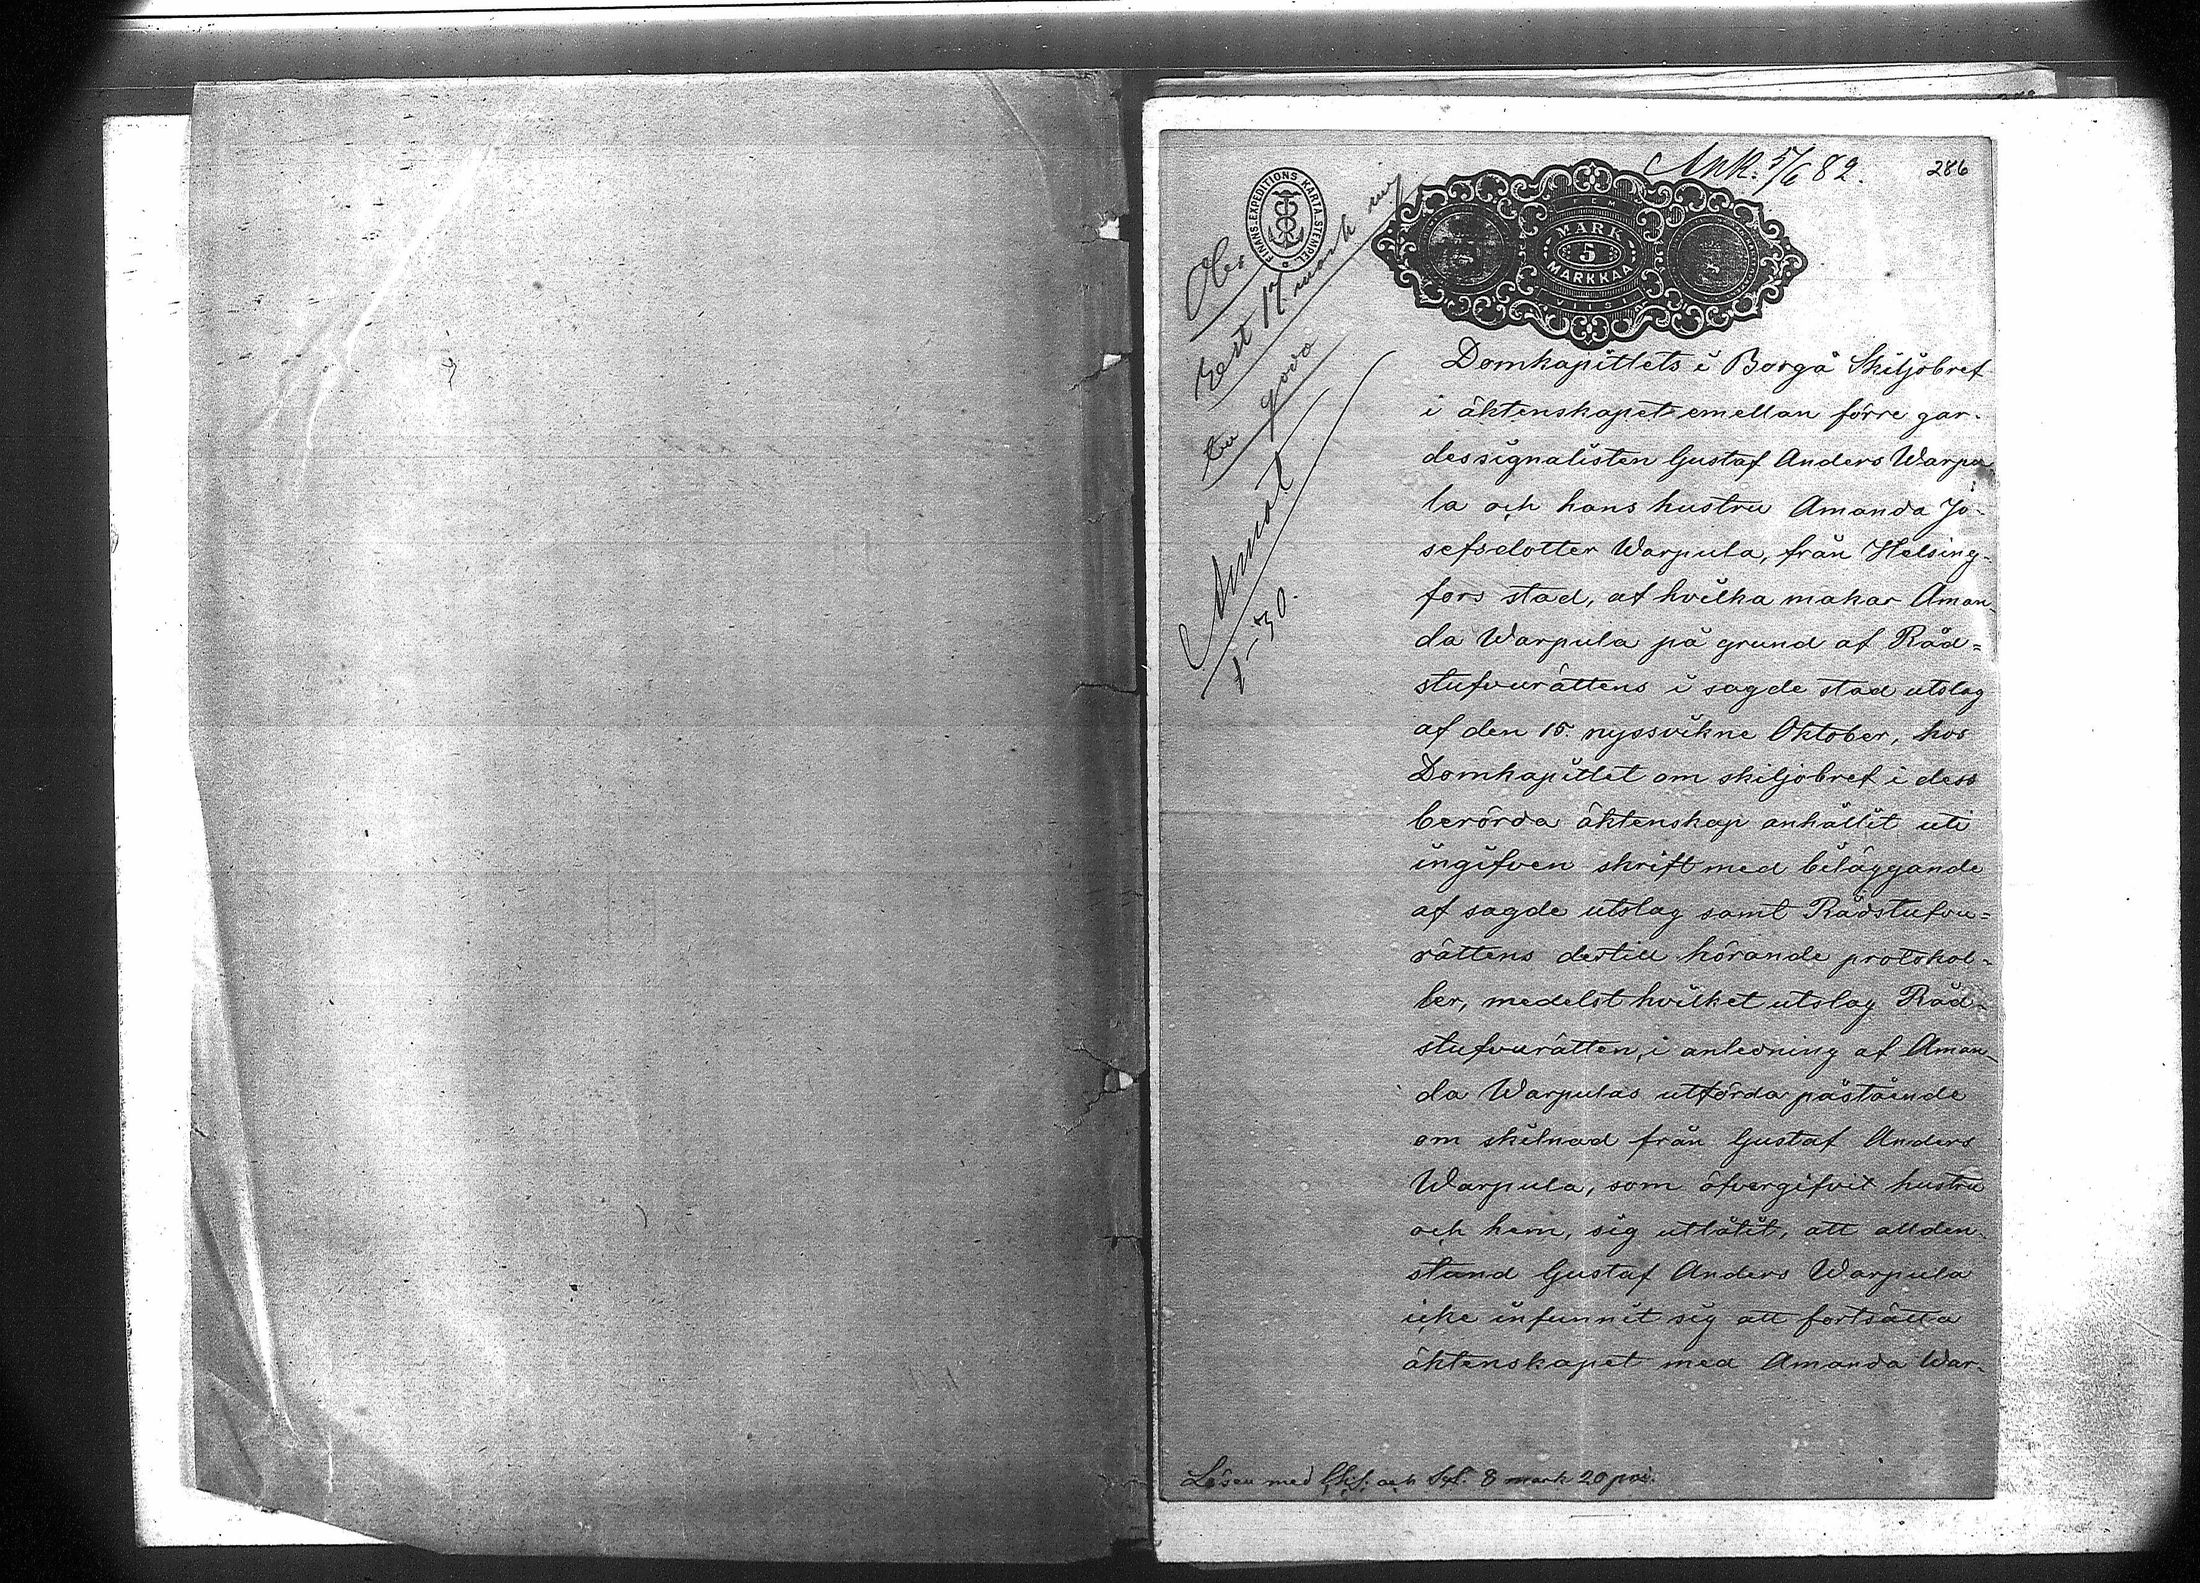 Ank. 5/6 82.
286
FINANS-EXPEDITIONS KARTA-STEMPEL
FEM
MARK
5
MARKKAA
VIISI
rest 17 mark
goda
1-30.
Domkapitlets i Borgå Skiljobref
i äktenskapet emellan förre gar-
dessignalisten Gustaf Anders Warpu-
la och hans hustru Amanda Jo-
sefsdotter Warpula, från Helsing-
fors stad, af hvilka makar Aman-
da Warpula på grund af Råd-
stufvurättens i sagde stad utslag
af den 15. nyssvikne Oktober, hos
Domkapitlet om skiljobref i dess
berörda äktenskap anhållit uti
ingifven skrift med biläggande
af sagde utslag samt Rådstufvu-
rättens dertill hörande protokol-
ler, medelst hvilket utslag Råd-
stufvurätten, i anledning af Aman-
da Warpulas utförda påstående
om skilnad från Gustaf Anders
Warpula, som öfvergifvit hustru
och hem, sig utlåtit, att allden-
stund Gustaf Anders Warpula
icke infunnit sig att fortsätta
äktenskapet med Amanda War-
Lösen med Ch.S. och Sxl. 8 mark 20 pni.